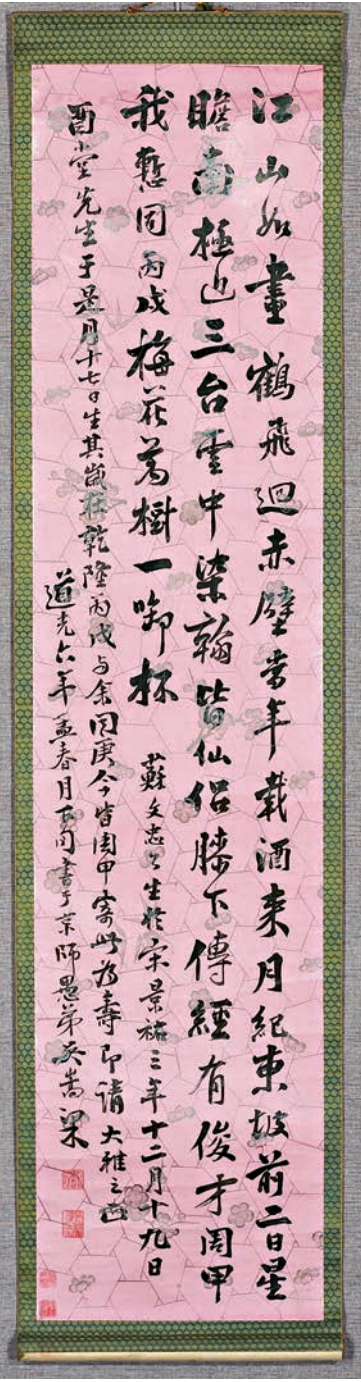 江山如畫鶴飛迴赤壁當年載酒來月紀東坡前二日星
瞻南極近三台雲中染翰皆仙侶膝下傳經有俊才周甲
我慙同丙戌梅花萬樹一啣杯
蘇文忠公生於宋景祐三年十二月十九日
酉堂先生于是月十七日生其歲在乾隆丙戌与余同庚今皆周甲寄此為壽即請大雅之正
道光六年孟春月下旬書于京師愚弟吳嵩梁